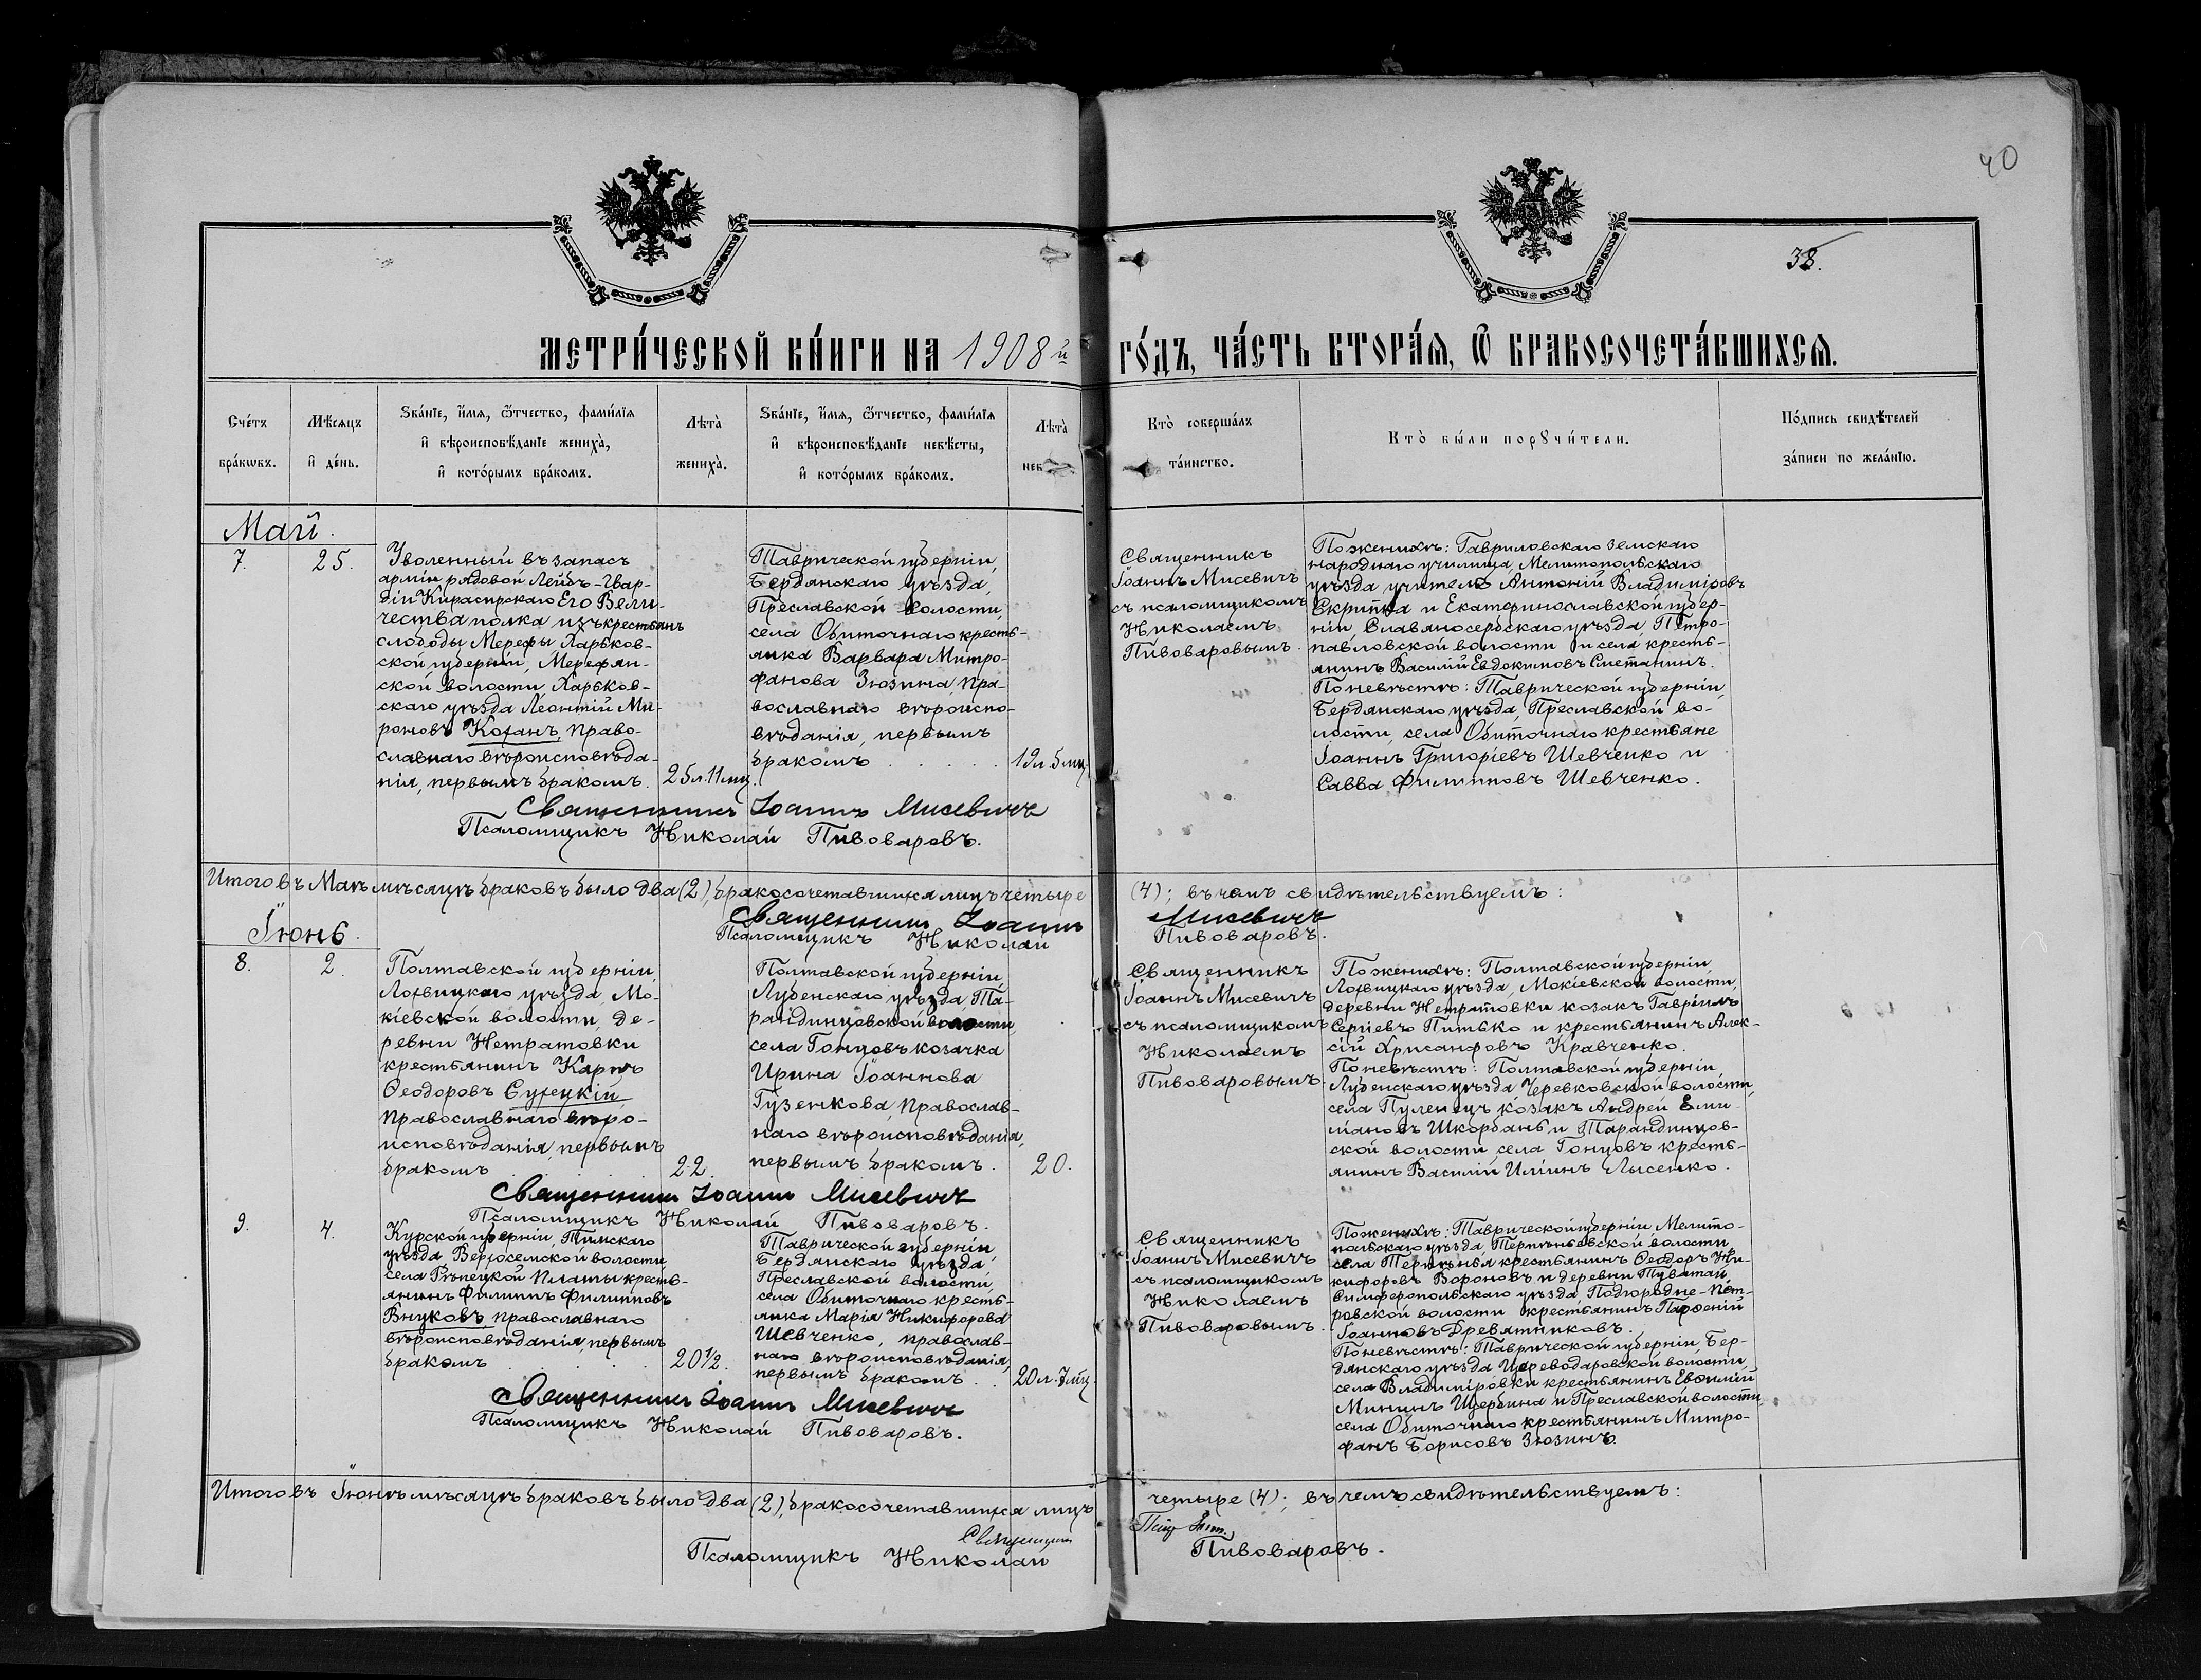 40
38.
МЕТРИ́ЧЕСКОЙ КНИ́ГИ НА 1908й ГО́ДЪ, ЧА́СТЬ ВТОРА́Я, Ѿ БРАКОСОЧЕТА́ВШИХСЯ.
Сче́тъ бра́кѡвъ.
Мѣ́сяцъ и де́нь.
Ѕва́нїе, и́мя, ѻ́тчество, фами́лїя
и вѣроисповѣ́данїе жениха̀,
и кото́рымъ бра́комъ.
Лѣта̀ жениха̀.
Ѕва́нїе, и́мя, ѻ́тчество, фами́лїя
и вѣроисповѣ́данїе невѣ́сты,
и кото́рымъ бра́комъ.
Лѣта̀
нев
Кто̀ соверша́лъ
та́инство.
Кто̀ бы́ли порꙋчи́тели.
По́дпись свидѣ́телей
за́писи по жела́нїю.
Май.
7.
25.
Уволенный въ запасъ
арміи рядовой Лейбъ-Гвар-
діи Кирасирскаго Его Вели-
чества полка изъ крестьянъ
слободы Мерефы Харьков-
ской губерніи, Мерефян-
ской волости, Харьков-
скаго уѣзда Леонтій Ми-
роновъ Коханъ, право-
славнаго вѣроисповѣда-
нія, первымъ бракомъ.
25л.11мц.
Таврической губерніи,
Бердянскаго уѣзда,
Преславской волости,
села Обиточнаго кресть-
янка Варвара Митро-
фанова Зюзина, пра-
вославнаго вѣроиспо-
вѣданія, первымъ
бракомъ . . . . .
19л.5мц.
Священникъ
Іоаннъ Мисевичъ
съ псаломщикомъ
Николаемъ
Пивоваровымъ.
По женихѣ: Гавриловскаго земскаго
народнаго училища, Мелитопольскаго
уѣзда учитель Антоній Владиміровъ
Скрипка и Екатеринославской губер-
ніи Славяносербскаго уѣзда Петро-
павловской волости и села кресть-
янинъ Василій Евдокимовъ Сметанинъ.
По невѣстѣ: Таврической губерніи,
Бердянскаго уѣзда, Преславской во-
лости, села Обиточнаго крестьяне
Іоаннъ Григоріевъ Шевченко и
Савва Филипповъ Шевченко.
Священникъ Іоаннъ Мисевичъ
Псаломщикъ Николай Пивоваровъ.
Итого въ Маѣ мѣсяцѣ браковъ было два (2), бракосочетавшихся лицъ четыре (4); въ чемъ свидѣтельствуемъ:
Священникъ Іоаннъ Мисевичъ
Псаломщикъ Николай Пивоваровъ.
Іюнь.
8.
2.
Полтавской губерніи
Лохвицкаго уѣзда, Мо-
кіевской волости, де-
ревни Нетратовки
крестьянинъ Карпъ
Ѳеодоровъ Сухецкій,
православнаго вѣро-
исповѣданія, первымъ
бракомъ
22.
Полтавской губерніи,
Лубенскаго уѣзда, Та-
рандинцовской волости,
села Гонцовъ козачка
Ирина Іоаннова
Гузенкова, православ-
наго вѣроисповѣданія,
первымъ бракомъ.
20.
Священникъ
Іоаннъ Мисевичъ
съ псаломщикомъ
Николаемъ
Пивоваровымъ.
По женихѣ: Полтавской губерніи,
Лохвицкаго уѣзда, Мокіевской волости,
деревни Нетратовки козакъ Гавріилъ
Сергіевъ Питько и крестьянинъ Алек-
сій Хрисанфовъ Кравченко.
По невѣстѣ: Полтавской губерніи,
Лубенскаго уѣзда Черевковской волости,
села Пулинецъ козакъ Андрей Еми-
ліановъ Шкорбань и Тарандинцов-
ской волости, села Гонцовъ кресть-
янинъ Василій Иліинъ Лысенко.
Священникъ Іоаннъ Мисевичъ
Псаломщикъ Николай Пивоваровъ.
9.
4.
Курской губерніи, Тимскаго
уѣзда Верхосемской волости,
села Рѣпецкой Платы кресть-
янинъ Филиппъ Филипповъ
Внуковъ, православнаго
вѣроисповѣданія, первымъ
бракомъ . . . .
20½.
Таврической губерніи,
Бердянскаго уѣзда,
Преславской волости,
села Обиточнаго кресть-
янка Марія Никифорова
Шевченко, православ-
наго вѣроисповѣданія,
первымъ бракомъ . .
20л.7мц.
Священникъ
Іоаннъ Мисевичъ
съ псаломщикомъ
Николаемъ
Пивоваровымъ.
По женихѣ: Таврической губерніи Мелито-
польскаго уѣзда, Терпѣньевской волости,
села Терпѣнья крестьянинъ Ѳеодоръ Ни-
кифоровъ Вороновъ и деревни Тубатай,
Симферопольскаго уѣзда, Подгородне-Пет-
ровской волости крестьянинъ Парѳеній
Іоанновъ Древятниковъ.
По невѣстѣ: Таврической губерніи, Бер-
дянскаго уѣзда Цареводаровской волости,
села Владиміровки крестьянинъ Евѳимій
Мининъ Щербина и Преславской волости,
села Обиточнаго крестьянинъ Митро-
фанъ Борисовъ Зюзинъ.
Священникъ Іоаннъ Мисевичъ
Псаломщикъ Николай Пивоваровъ.
Итого въ Іюнѣ мѣсяцѣ браковъ было два (2), бракосочетавшихся лицъ четыре (4); въ чемъ свидѣтельствуемъ:
Священникъ
Псаломщикъ Николай Пивоваровъ.